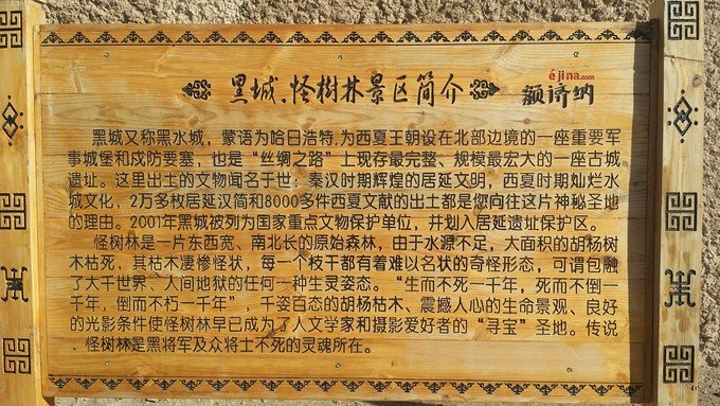 黑城、怪樹林景区简介
éjina.com
额济纳
黑城又称黑水城，蒙语为哈日浩特,为西夏王朝设在北部边境的一座重要军
事城堡和戍防要塞，也是“丝绸之路”上现存最完整、规模最宏大的一座古城
遗址。这里出土的文物闻名于世：秦汉时期辉煌的居延文明，西夏时期灿烂水
城文化，2万多枚居延汉简和8000多件西夏文献的出土都是您向往这片神秘圣地
的理由。2001年黑城被列为国家重点文物保护单位，并划入居延遗址保护区。
怪树林是一片东西宽、南北长的原始森林，由于水源不足，大面积的胡杨树
木枯死，其枯木凄惨怪状，每一个枝干都有着难以名状的奇怪形态，可谓包融
了大千世界、人间地狱的任何一种生灵姿态。“生而不死一千年，死而不倒一
千年，倒而不朽一千年”，千姿百态的胡杨枯木、震撼人心的生命景观、良好
的光影条件使怪树林早已成为了人文学家和摄影爱好者的“寻宝”圣地。传说
、怪树林是黑将军及众将士不死的灵魂所在。